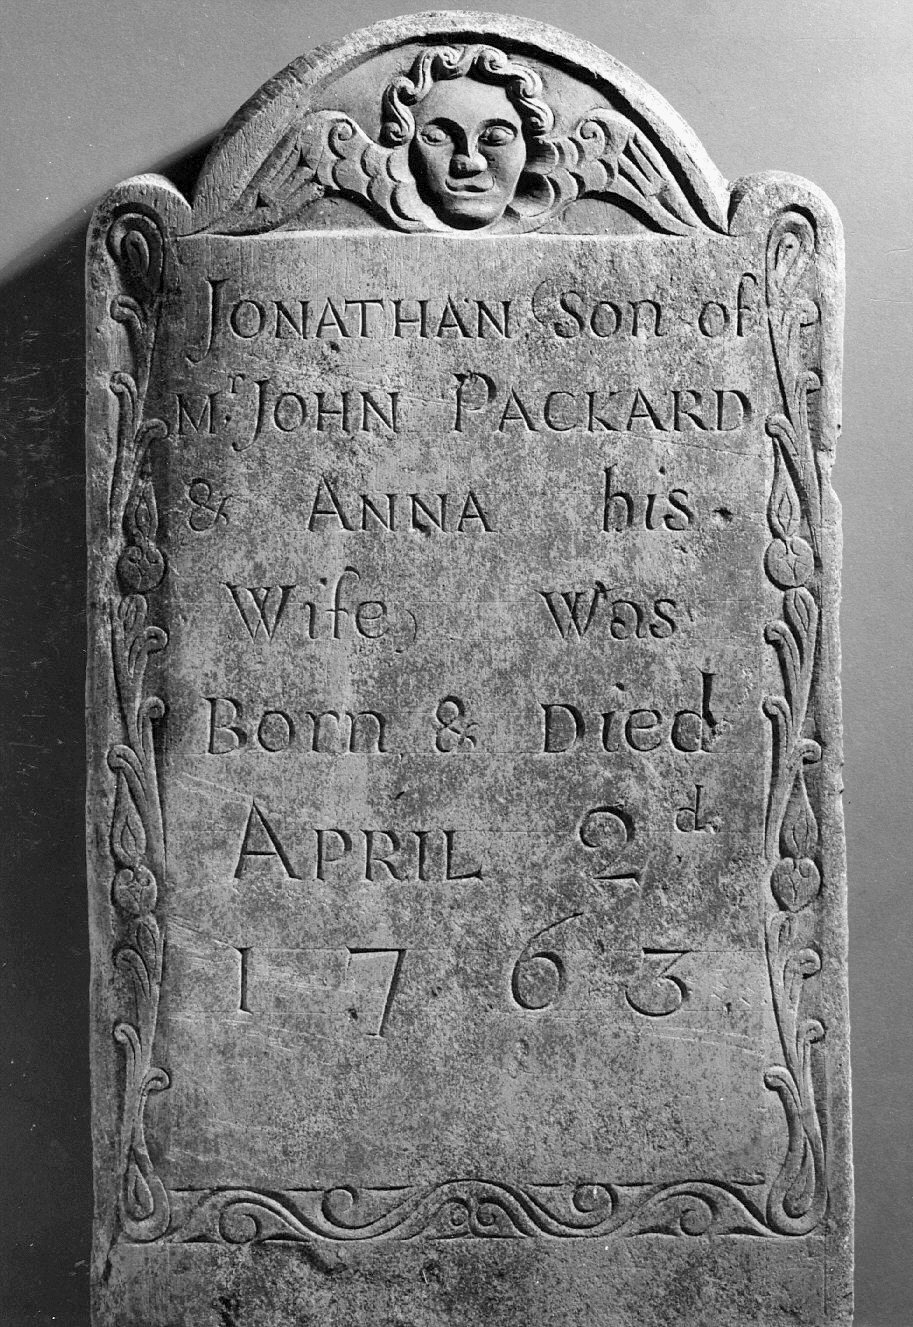 JONATHAN Son of
Mr. JOHN PACKARD
& ANNA his
Wife Was
Born & Died
APRIL 2d.
1763